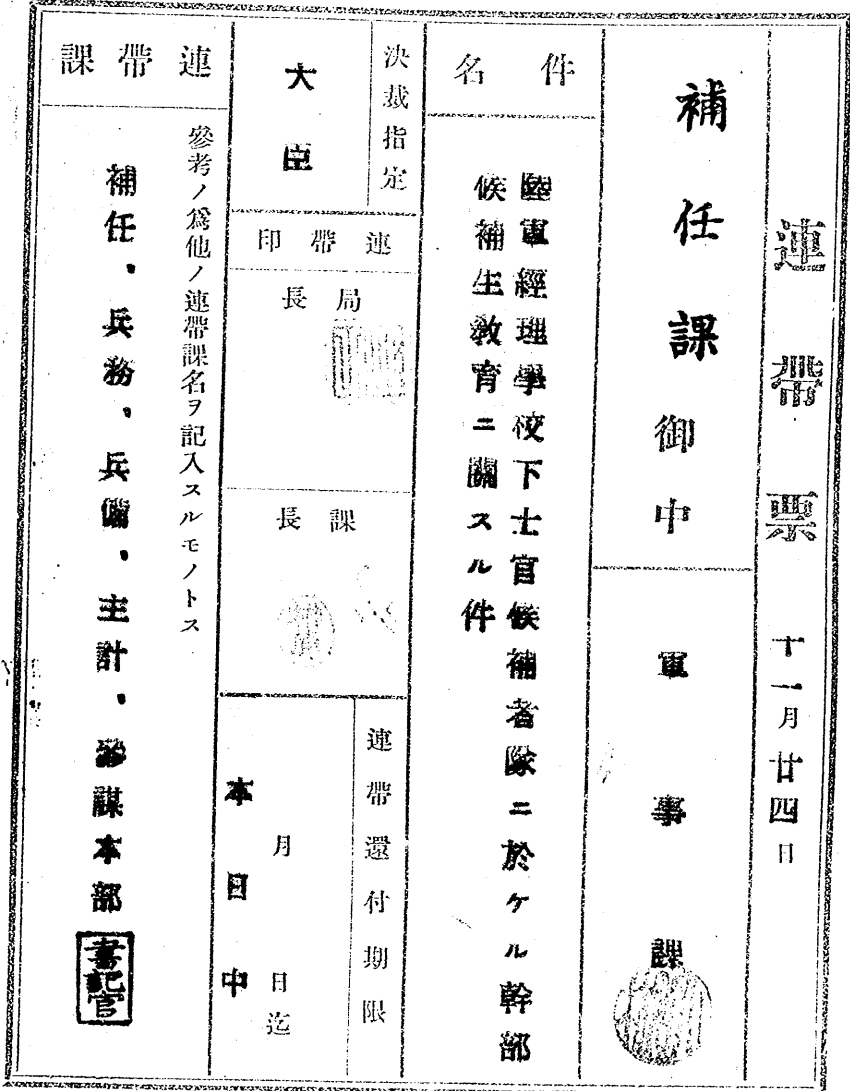 連帶票 十一月廿四日
補任課御中
軍事課
件名
陸軍經理學校下士官候補者隊ニ於ケル幹部
候補生敎育ニ關スル件
決裁指定
大臣
連帶印
局長
課長
連帶還付期限
月 日迄
本日中
連帶課
參考ノ爲他ノ連帶課名ヲ記入スルモノトス
補任、兵務、兵備、主計、參謀本部
書記官